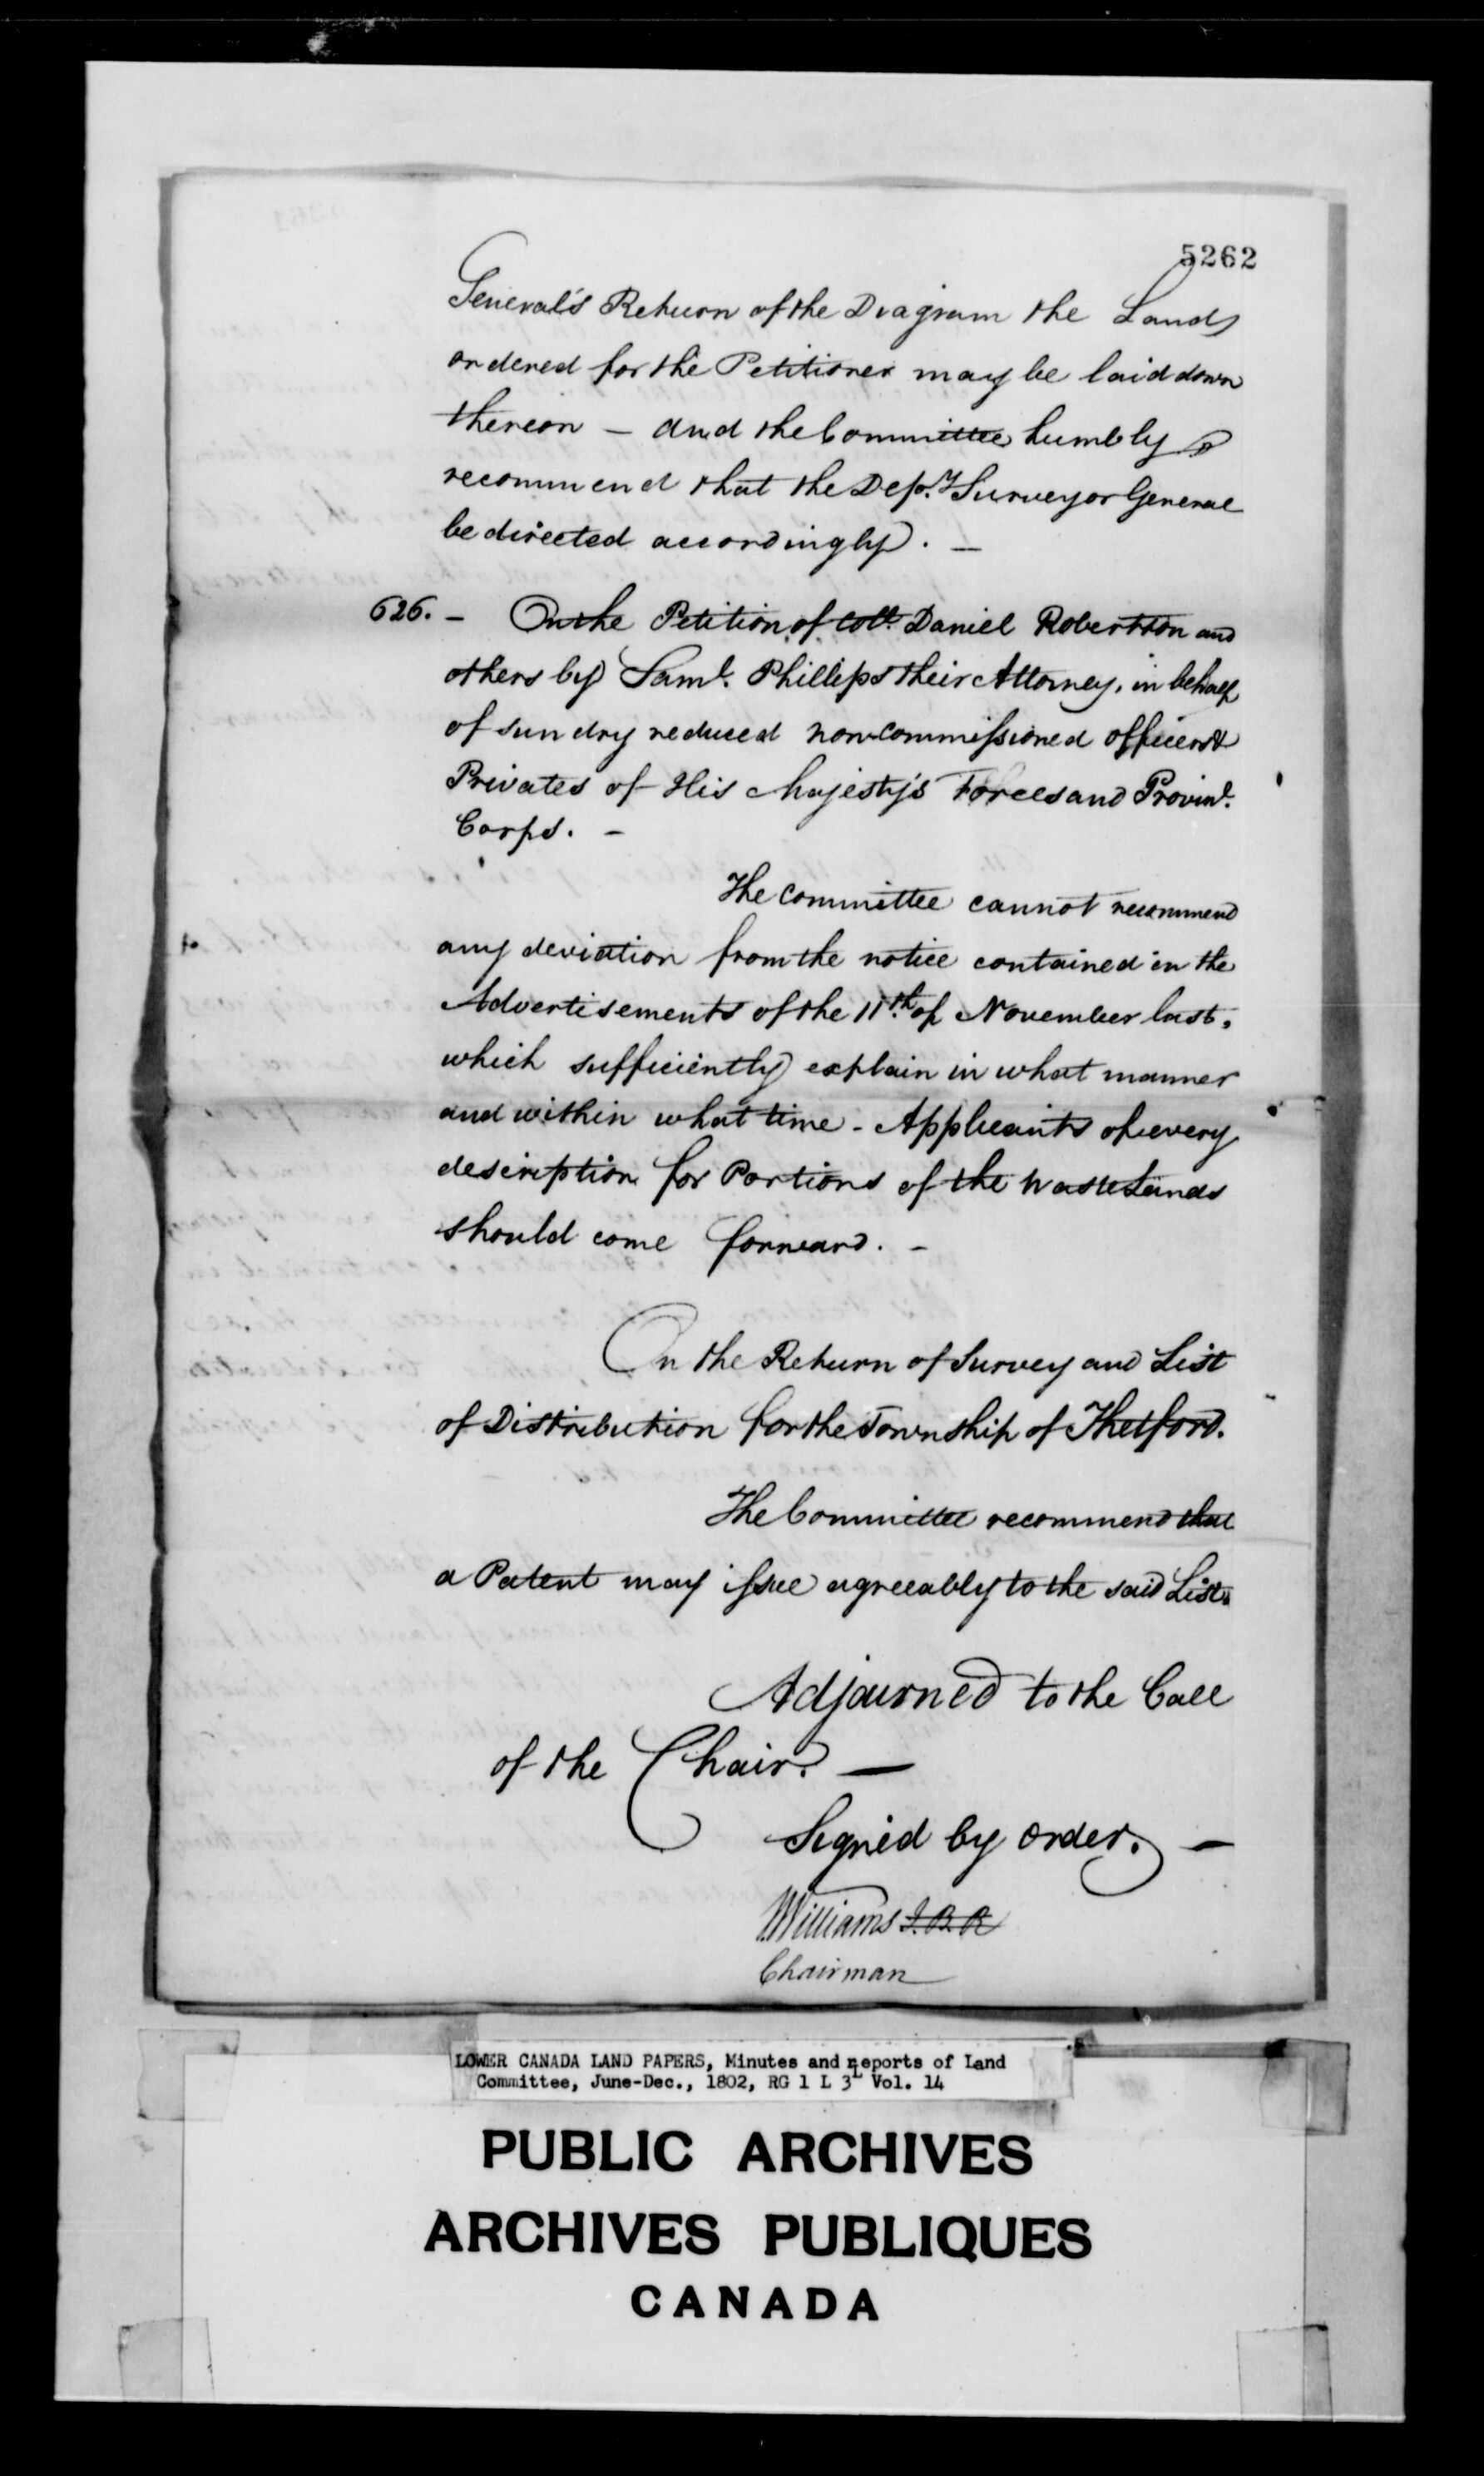 5262
General's Return of the Diagram the Lands
ordered for the Petitioner may be laid down
thereon – and the Committee humbly
recommend that the Dep.y Surveyor General
be directed accordingly. –
626. – On the Petition of Coll. Daniel Robertson and
others by Saml. Phillips their Attorney, in behalf
of sundry reduced non Commissioned officers &
Privates of His Majesty's Forces and Provinl.
Corps. –
The Committee cannot recommend
any deviation from the notice contained in the
Advertisements of the 11th of November last,
which sufficiently explain in what manner
and within what time - Applicants of every
description for Portions of the Waste Lands
should come forward. –
On the Return of Survey and List
of Distribution for the Township of Thetford.
The Committee recommend that
a Patent may issue agreeably to the said List.
Adjourned to the Call
of the Chair. —
Signed by order. —
Williams
Chairman
LOWER CANADA LAND PAPERS, Minutes and reports of Land
Committee, June-Dec., 1802, RG 1 L 3L Vol. 14
PUBLIC ARCHIVES
ARCHIVES PUBLIQUES
CANADA